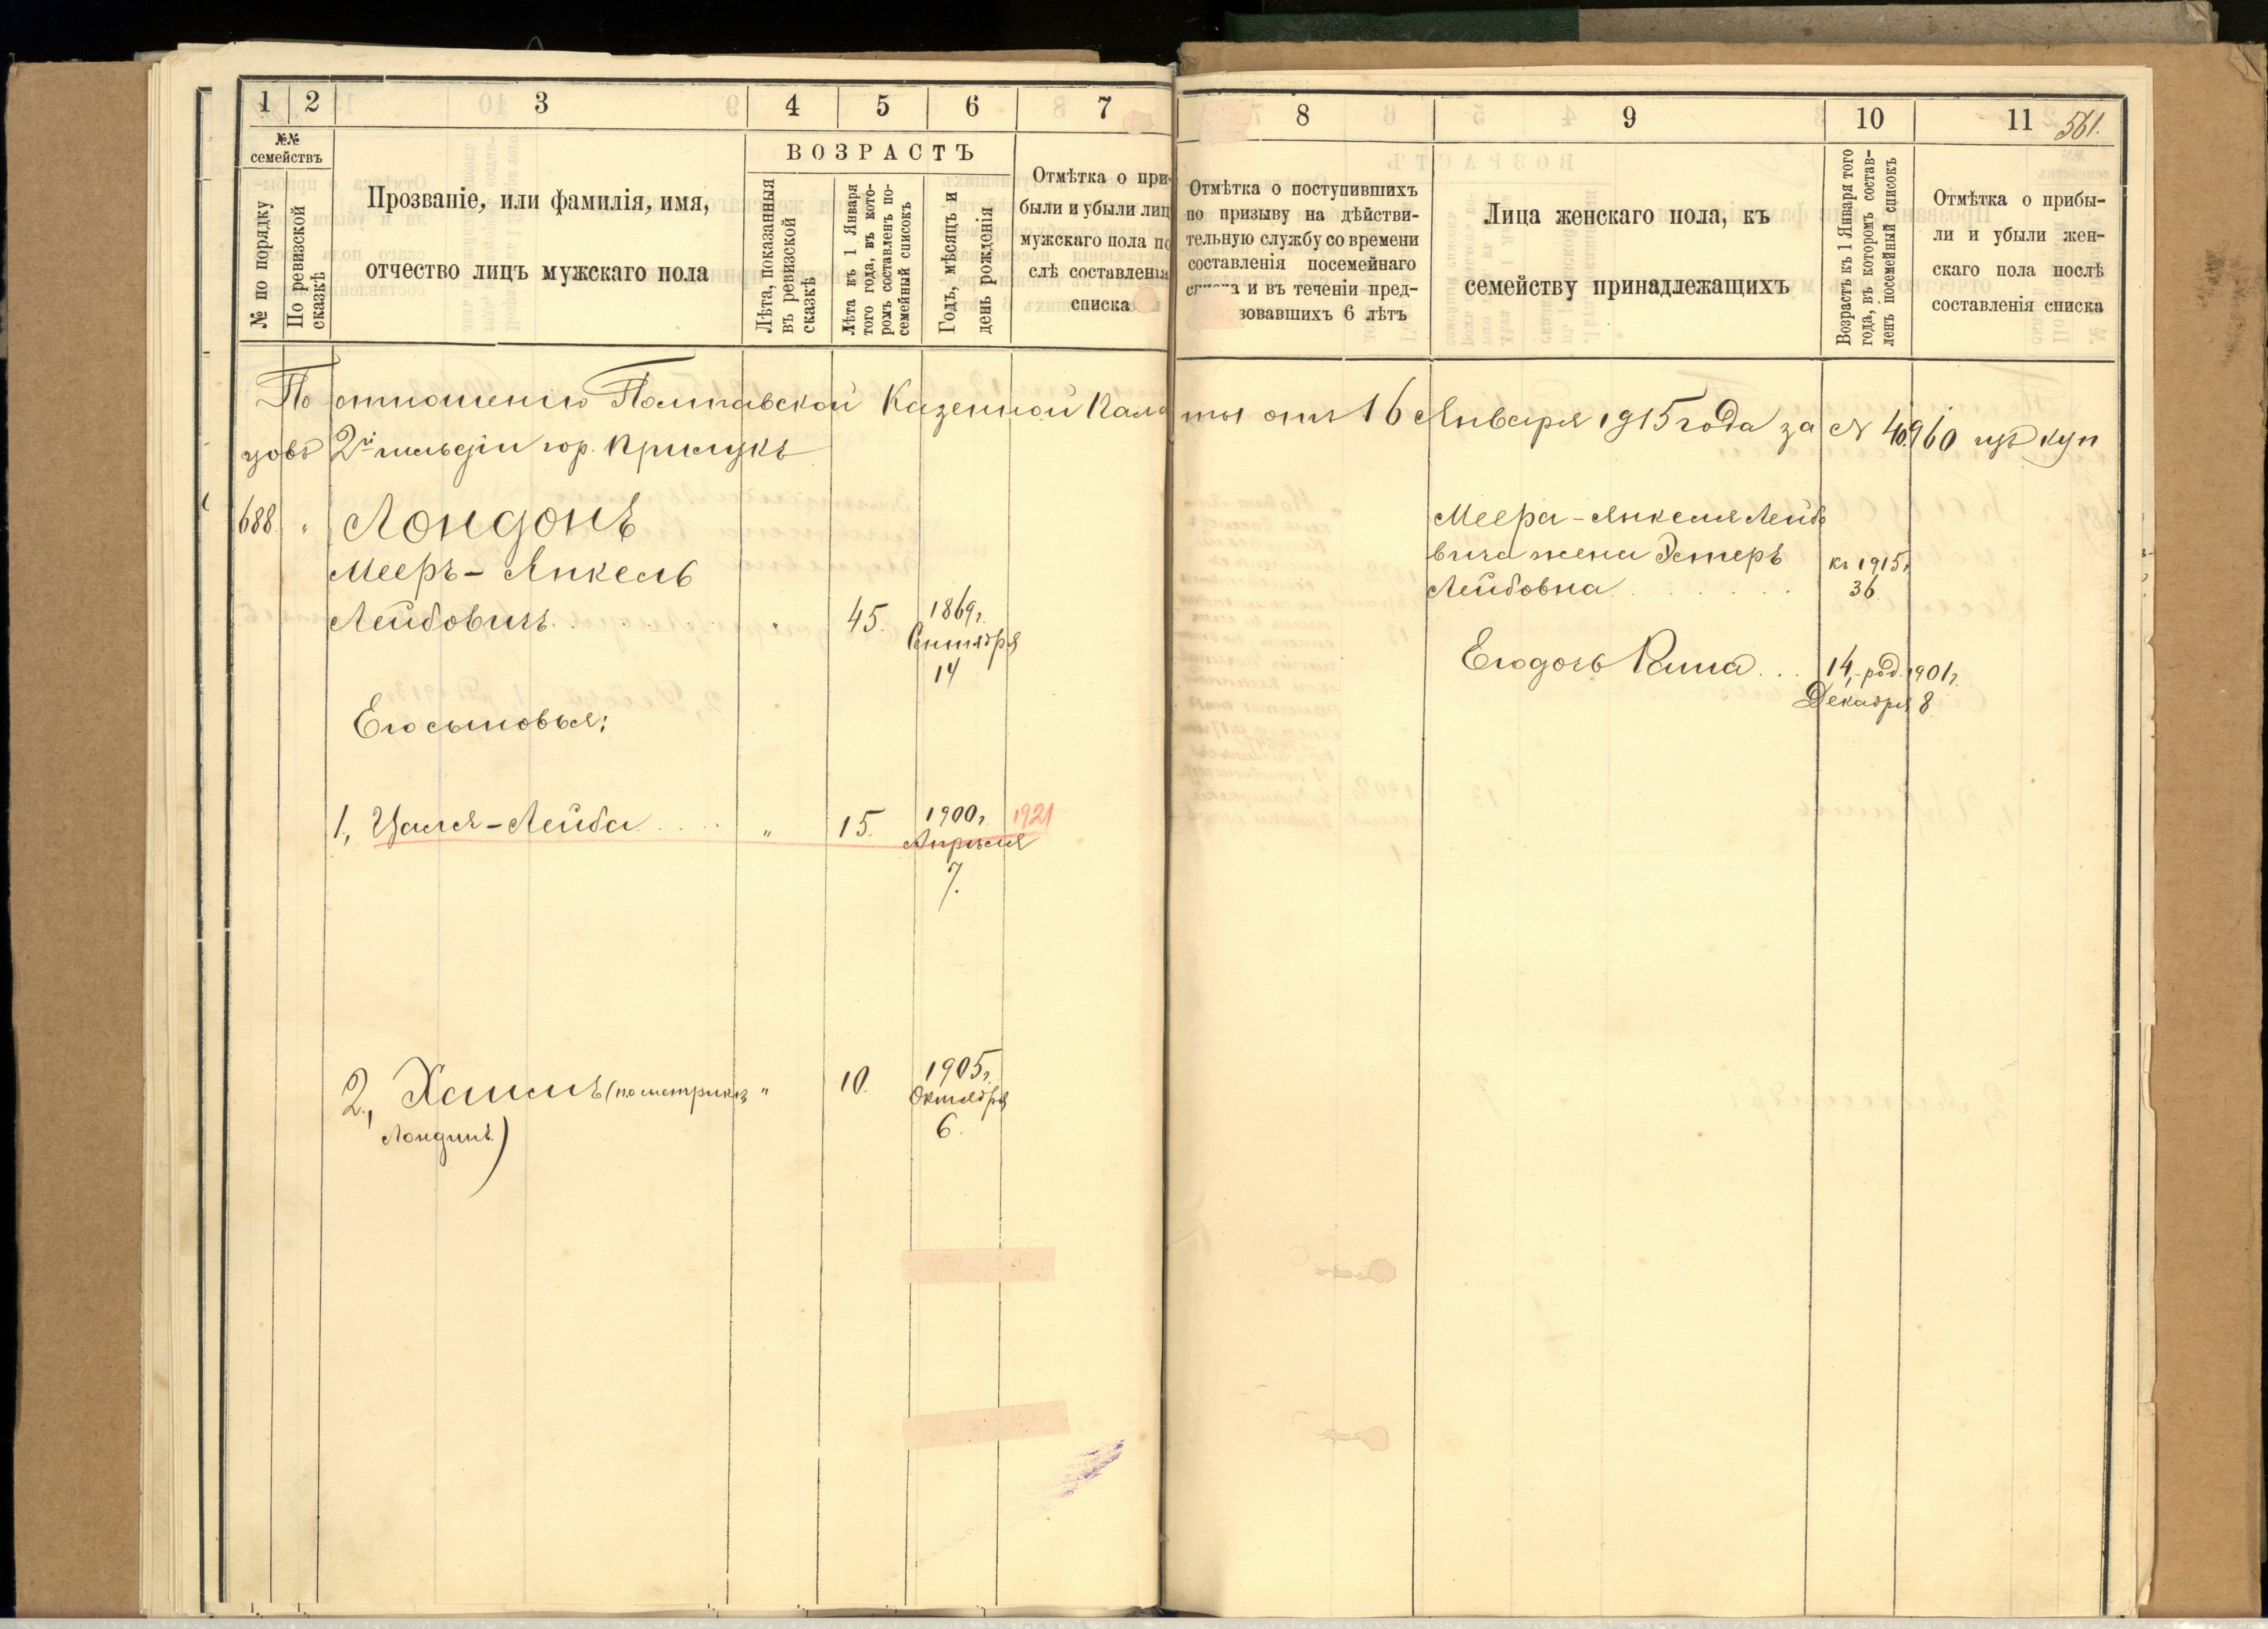 1 2 3 4 5 6 7
№№ семействъ
№ по порядку
По ревизской сказкѣ
Прозваніе, или фамилія, имя,
отчество лицъ мужскаго пола
ВОЗРАСТЪ
Лѣта, показанныя
въ ревизской
сказкѣ
Лѣта въ 1 Января
того года, въ кото-
ромъ составленъ по-
семейный списокъ
Годъ, мѣсяцъ и
день рожденія
Отмѣтка о при-
были и убыли лиц
мужскаго пола по
слѣ составленія
списка
8 9 10 11
561.
Отмѣтка о поступившихъ
по призыву на дѣйстви-
тельную службу со времени
составленія посемейнаго
и въ теченіи пред-
зовавшихъ 6 лѣтъ
Лица женскаго пола, къ
семейству принадлежащихъ
Возрастъ къ 1 Января того
года, въ которомъ состав-
ленъ посемейный списокъ
Отмѣтка о прибы-
ли и убыли жен-
скаго пола послѣ
составленія списка
По отношенію Полтавской Казенной Пала
ты отъ 16 Января 1915 года за № 40960 изъ куп
цовъ 2й гильдіи гор. Прилукъ
688. " Лондонъ
Мееръ-Янкель
Лейбовичъ. " 45. 1869г.
Сентября
14
Его сыновья:
1, Цаля-Лейба " 15. 1900г. 1921
Апрѣля
7.
2, Хаимъ (по метрикѣ " 10. 1905г.
Октября
Лондинъ) 6.
Меера-Янкеля Лейбо
вича жена Эстеръ къ 1915г.
Лейбовна 36.
Его дочь Раша 14, род. 1901г.
Декабря 8